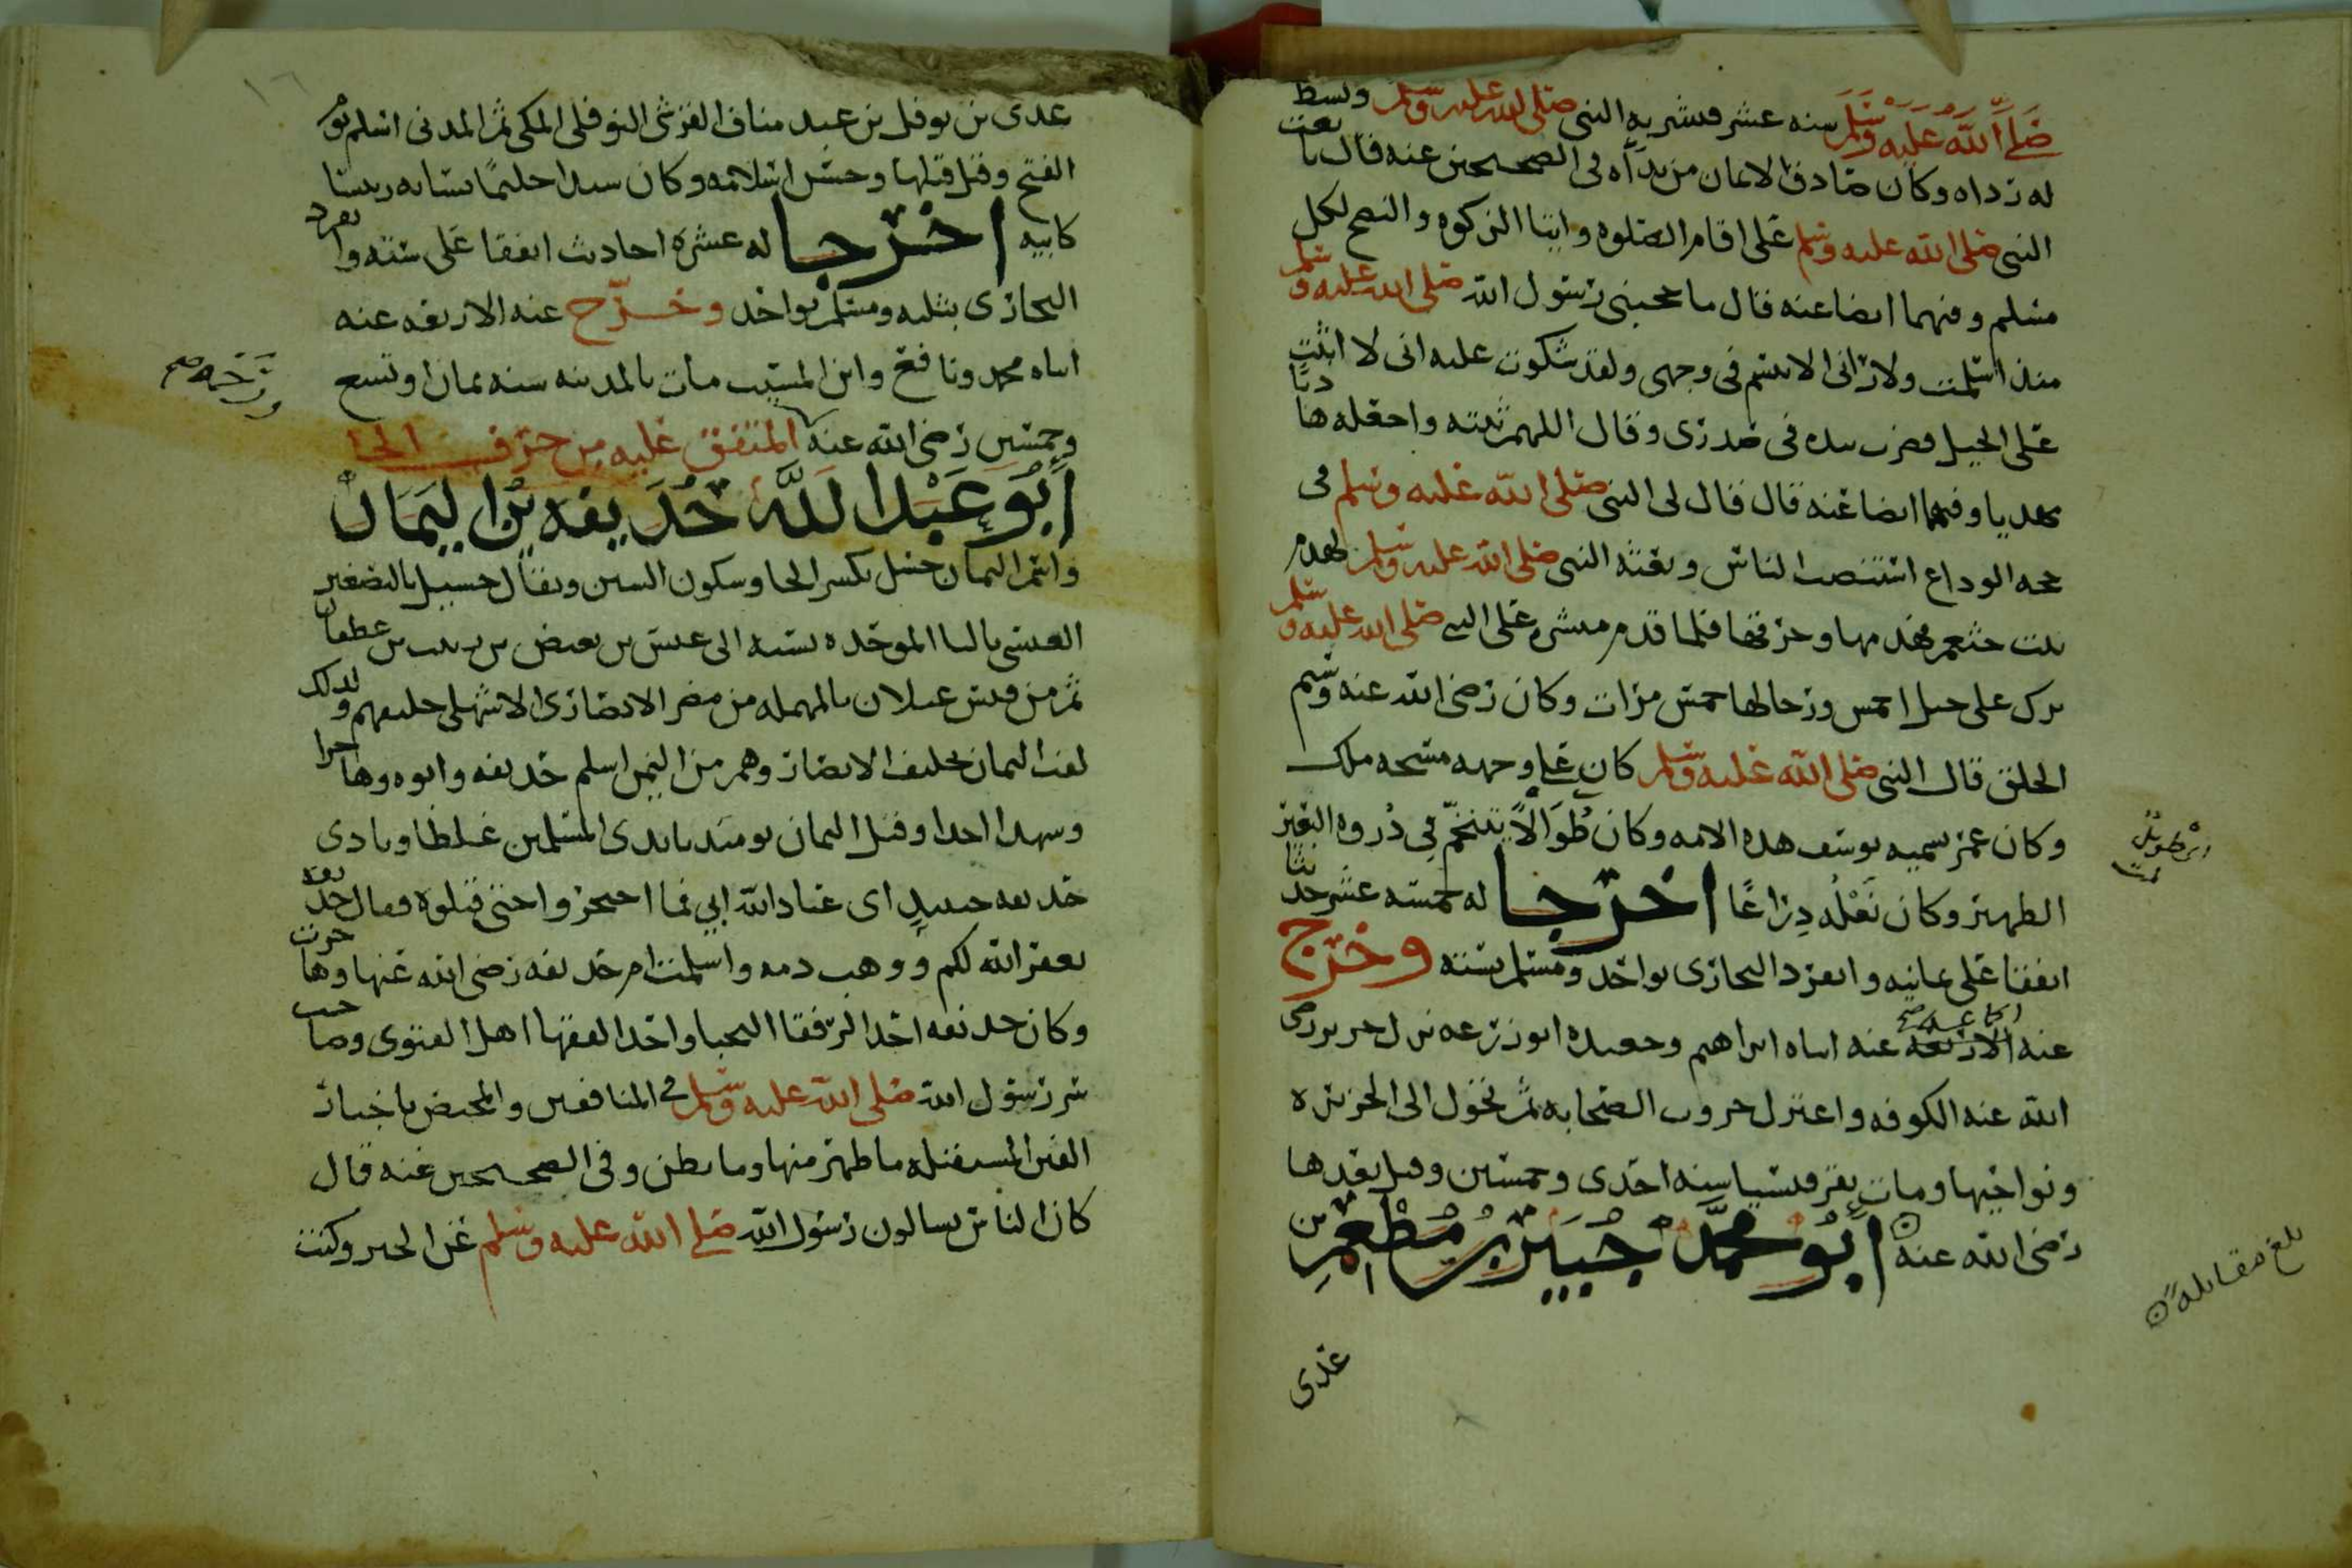 صلى الله عليه وسلم سنه عشر فبشر به النبي صلى الله عليه وسلم وبسط
له رداه وكان صادق الايمان من يدراه في الصحيحين عنه قال بايعت
النبي صلى الله عليه وسلم على اقام الصلوه وايتا الزكوه والنصح لكل
مسلم وفيهما ايضا عنه قال ما حجبني رسول الله صلى الله عليه وسلم
منذ اسلمت ولا راني الا تبسم في وجهي ولقد شكوت عليه اني لا اثبت
على الخيل فضرب بيده في صدري وقال اللهم ثبته واجعله هاديا
مهديا وفيهما ايضا عنه قال قال لي النبي صلى الله عليه وسلم في
حجه الوداع استنصت الناس وبعثه النبي صلى الله عليه وسلم لهدم
بيت خثعم فهدمها وحرقها فلما قدم مبشره على النبي صلى الله عليه وسلم
برك على خيل احمس ورجالها خمس مرات وكان رضي الله عنه وسيم
الخلق قال النبي صلى الله عليه وسلم كان على وجهه مسحه ملك
وكان عمر يسميه يوسف هذه الامه وكان طوالا يتنخم في ذروه البعير
اي طويل
الطهير وكان نعله ذراعا اخرجا له خمسه عشر حديثا
اتفقا على ثمانيه وانفرد البخاري بواحد ومسلم بسته وخرج
عنه الاربعه عنه ابناه ابراهيم وحفيده ابو زرعه نزل جرير رضي
الله عنه الكوفه واعتزل حروب الصحابه ثم تحول الى الجزيره
ونواحيها ومات بقرقيسيا سنه احدى وخمسين وقيل بعدها
رضي الله عنه ابو محمد جبير بن مطعم بن
بلغ مقابله
عدي
عدي بن نوفل بن عبد مناف القرشي النوفلي المكي ثم المدني اسلم يوم
الفتح وقيل قبلها وحسن اسلامه وكان سيدا حليما نسابه رييسا
كابيه اخرجا له عشره احاديث اتفقا على سته وانفرد
البخاري بثلثه ومسلم بواحد وخرج عنه الاربعه عنه
ابناه محمد ونافع وابن المسيب مات بالمدينه سنه ثمان او تسع
وخمسين رضي الله عنه المتفق عليه من حرف الحا
ورحمه صح
ابو عبد الله حذيفه بن اليمان
واسم اليمان حسل بكسر الحا وسكون السين ويقال حسيل بالتصغير
العبسي بالبا الموحده نسبه الى عبس بن بغيض بن ريث بن غطفان
ثم من قيس عيلان بالمهمله من مضر الانصاري الاشهلي حليفهم ولذلك
لقب اليمان بحليف الانصار وهم من اليمن اسلم حذيفه وابوه وهاجرا
وشهدا احدا وقتل اليمان يوميذ بايدي المسلمين غلطا ونادى
حذيفه حينيذ اي عباد الله ابي فما احتجزوا حتى قتلوه فقال حذيفه
يغفر الله لكم ووهب دمه واسلمت ام حذيفه رضي الله عنها وهاجرت
وكان حذيفه احد الرفقا النجبا واحد الفقها اهل الفتوى وصاحب
سر رسول الله صلى الله عليه وسلم في المنافقين والمختص باخبار
الفتن المستقبله ما ظهر منها وما بطن وفي الصحيحين عنه قال
كان الناس يسالون رسول الله صلى الله عليه وسلم عن الخير وكنت